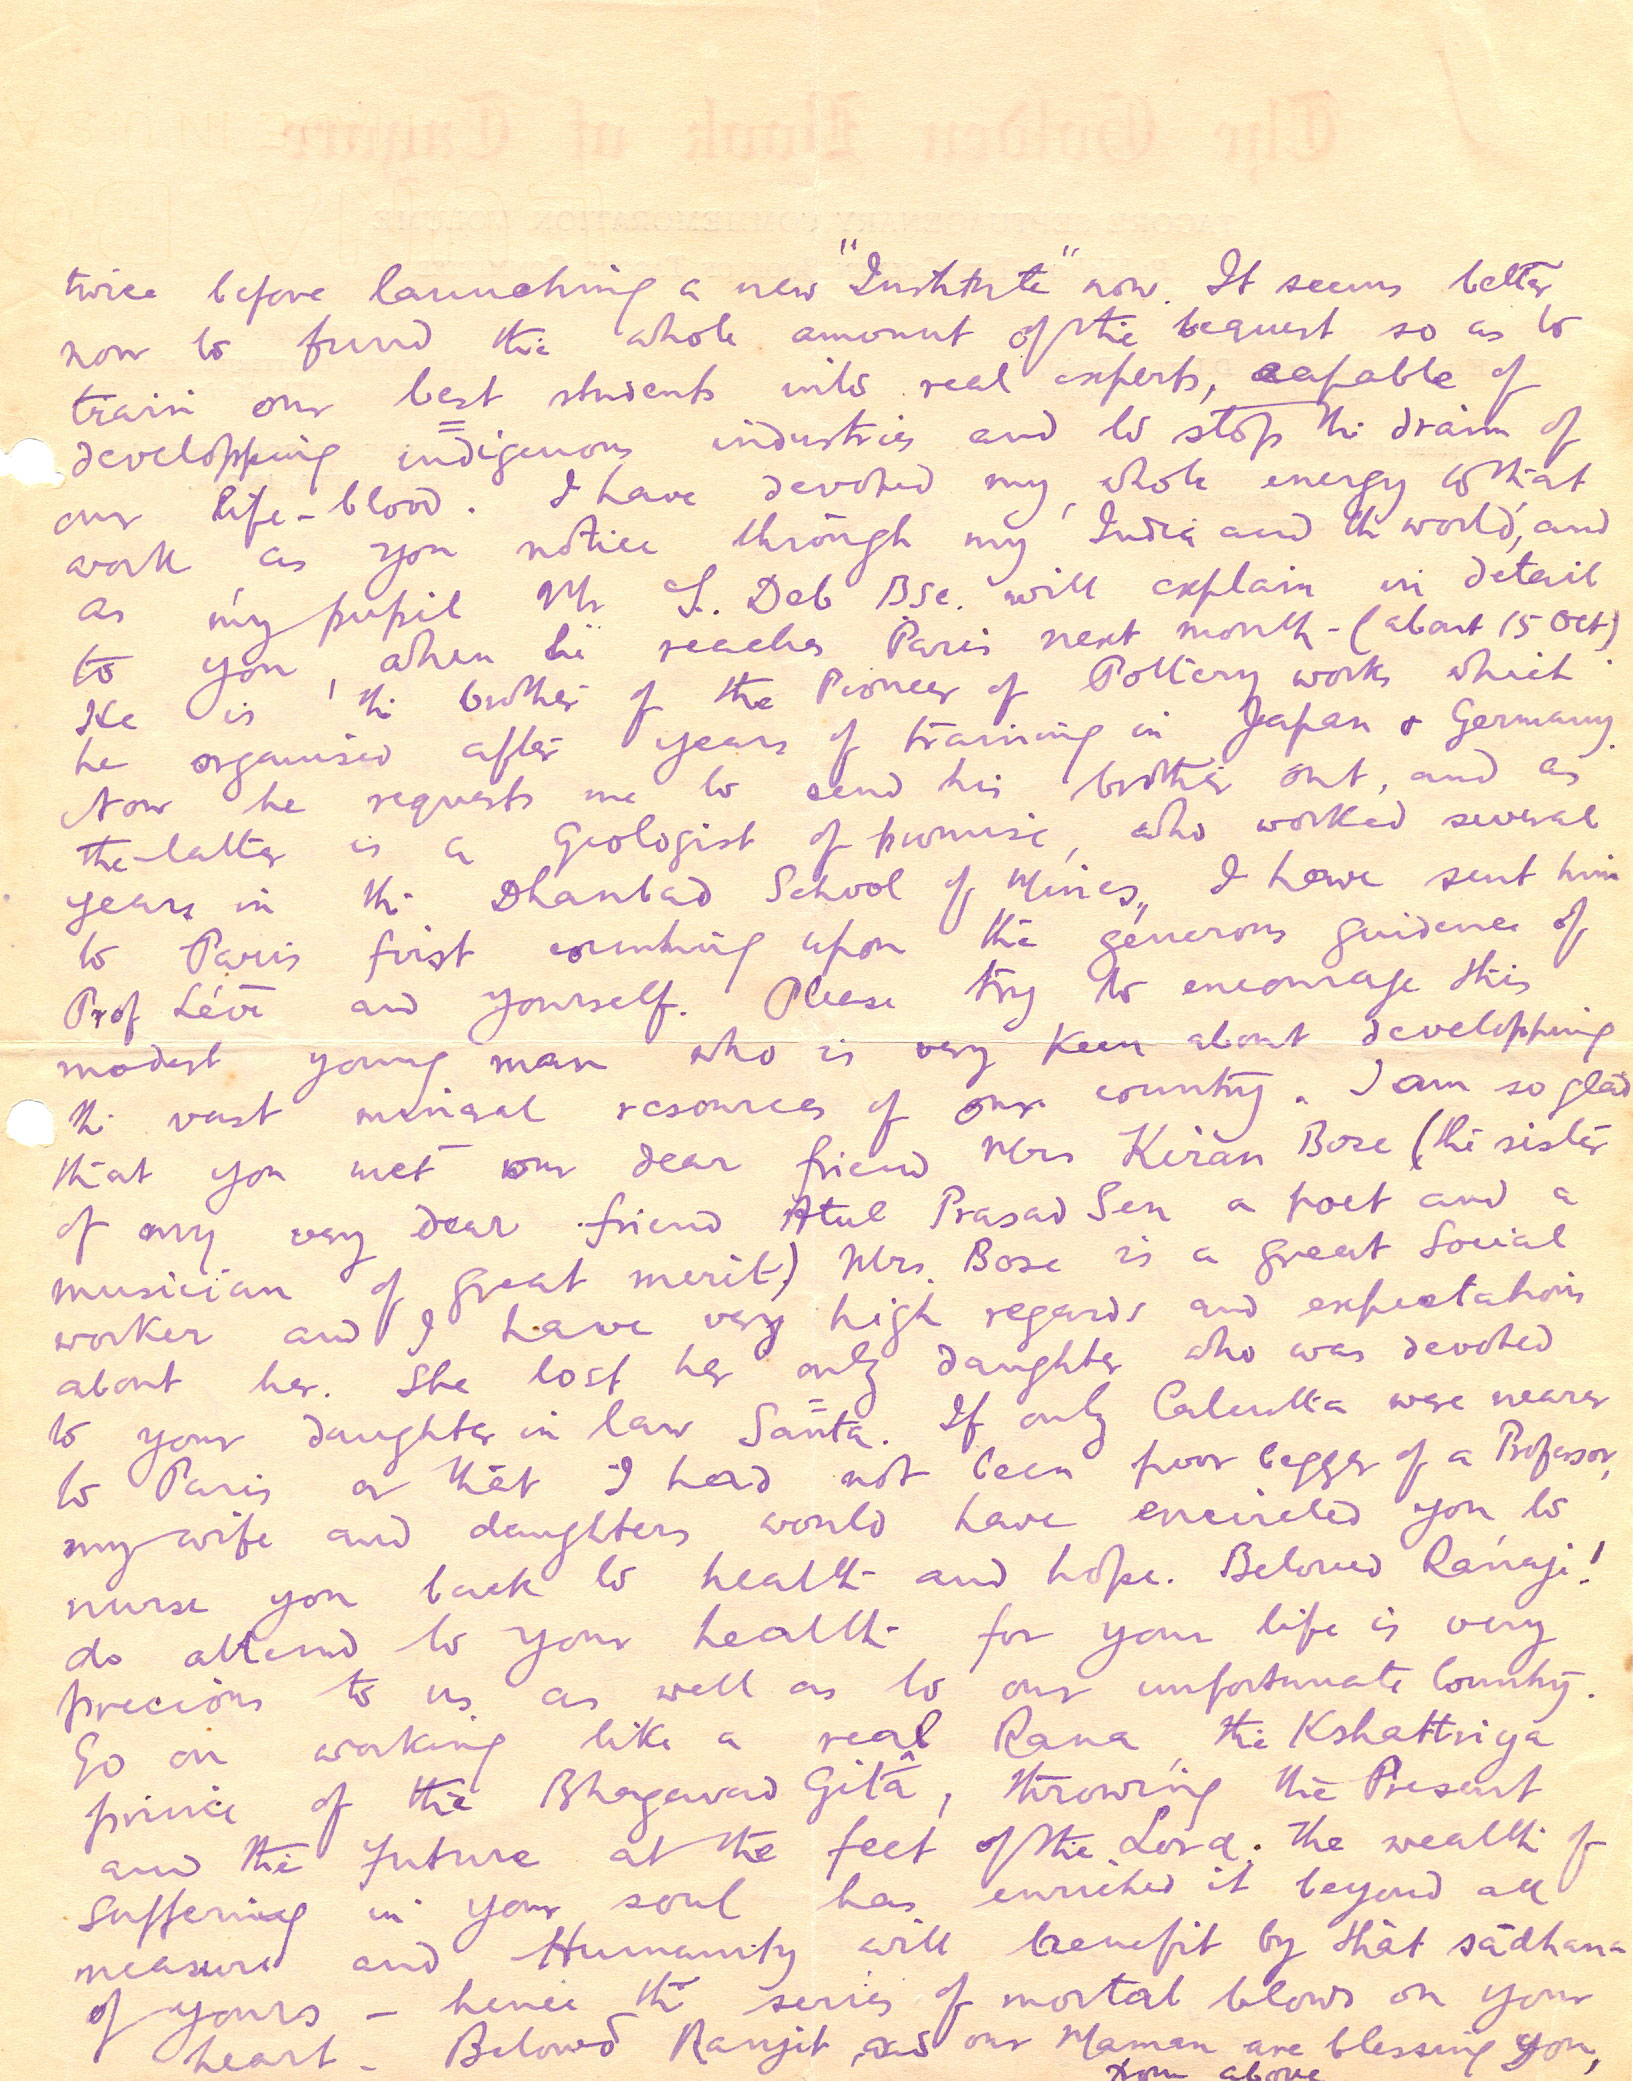 The Golden Book of Tagore
TAGORE SEPTUAGENARY COMMEMORATION VOLUME
twice before launching a new "Institute" now. It seems better
now to fund the whole amount of the bequest so as to
train our best students into real experts, capable of
developping indigenous industries and to stop the drain of
our life-blood. I have devoted my whole energy to that
work as you notice through my 'India and the world', and
as my pupil Mr S. Deb BSc. will explain in detail
to you, when he reaches Paris next month - (about 15 Oct)
He is the brother of the Pioneer of Pottery works which
he organised after years of training in Japan & Germany.
Now he requests me to send his brother out, and as
the latter is a Geologist of promise, who worked several
years in the Dhanbad School of Mines, I have sent him
to Paris first counting upon the generous guidence of
Prof Lévi and yourself. Please try to encourage this
modest young man who is very keen about developping
the vast mineral resources of our country. I am so glad
that you met our dear friend Mrs Kiran Bose (the sister
of my very dear friend Atul Prasad Sen a poet and a
musician of great merit) Mrs. Bose is a great Social
worker and I have very high regards and expectations
about her. She lost her only daughter who was devoted
to your daughter in law Santa. If only Calcutta were nearer
to Paris or that I had not been poor begger of a Professor,
my wife and daughters would have encircled you to
nurse you back to health and hope. Beloved Ranaji!
do attend to your health for your life is very
precious to us as well as to our unfortunate Country.
Go on working like a real Rana, the Kshattriya
prince of the Bhagavad Gitâ, throwing the Present
and the future at the feet of the Lord. The wealth of
suffering in your soul has enriched it beyond all
measure and Humanity will benefit by that sādhana
of yours - hence the series of mortal blows on your
heart - Beloved Ranjit and our Maman are blessing you,
from above